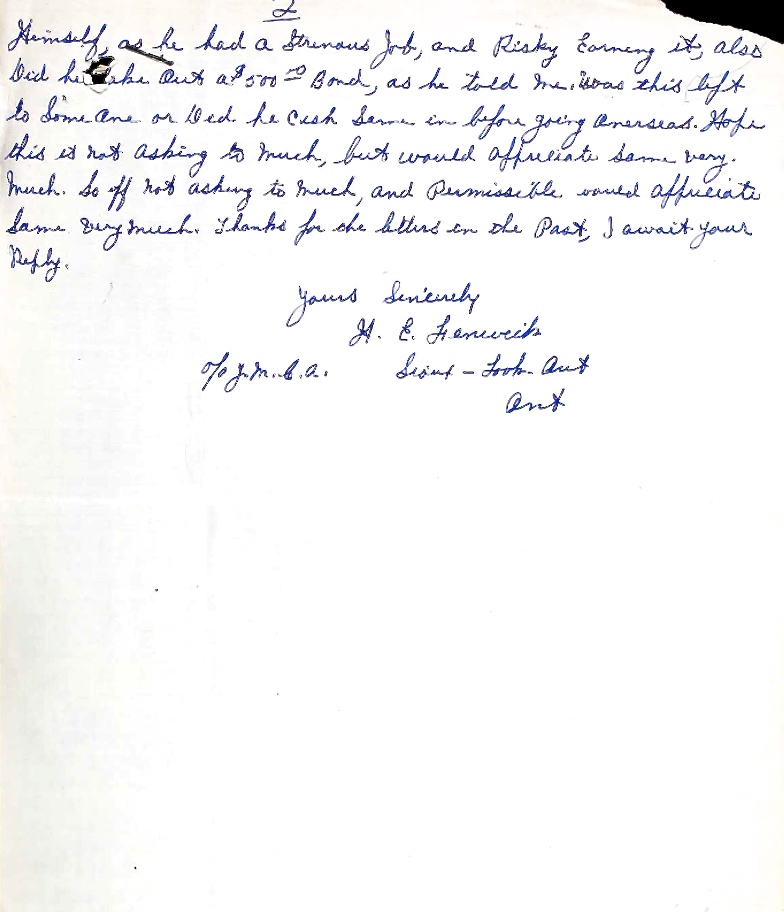 2
Himself, as he had a Strenous Job, and Risky Earning it, also
Did he take Out a $500 00 Bond, as he told me. Was this left
to Some One or Did he Cash Same in before going Overseas. Hope
this is not asking to Much, but would appreciate Same very.
Much. So iff not asking to Much, and Permissible would appreciate
Same very much. Thanks for the letters in the Past, I await your
Reply.
Yours Sincerely
H. E. Fenwick
c/o Y.M.C.A. Sioux - Look-Out
Ont